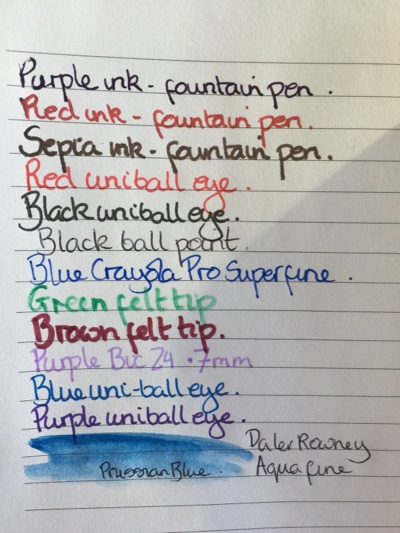 Purple ink - fountain pen .
Red ink - fountain pen.
Sepia ink - fountain pen.
Red uniball eye.
Black uniball eye.
Black ball point.
Blue Crayola Pro Superfine .
Green felt tip
Brown felt tip.
Purple Bic 24 .7mm
Blue uni-ball eye.
Purple uniball eye.
Daler Rowney
Prussian Blue. Aquafine